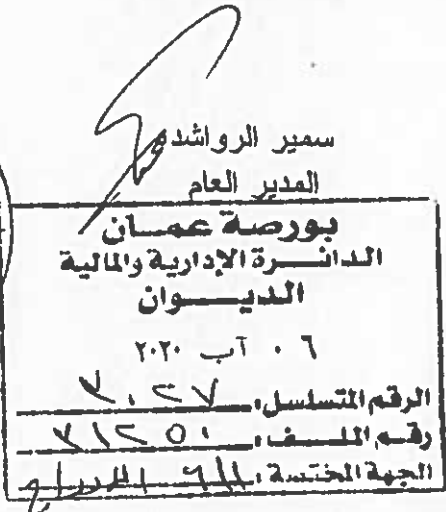 سمير الرواشده
المدير العام
بورصة عمان
الدائرة الإدارية والمالية
الديوان
٠٦ آب ٢٠٢٠
الرقم المتسلسل: ٣٠٢٧
رقم الملف:
الجهة المختصة: